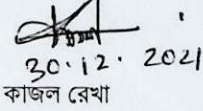 30.12.2021
কাজল রেখা